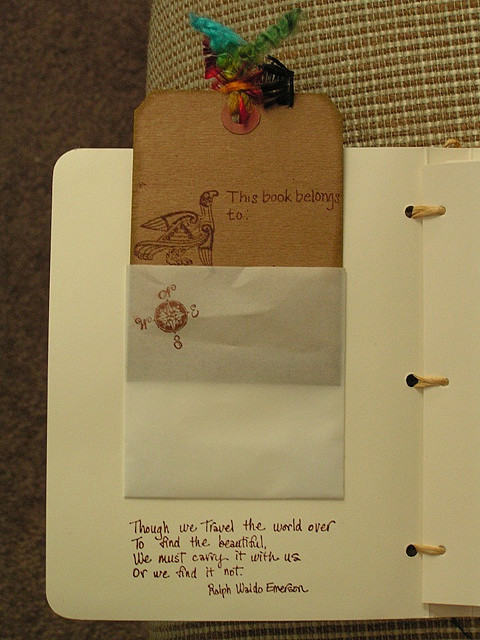 This book belongs
to.
N
W E
S
Though we Travel the world over
To find the beautiful,
We must carry it with us
Or we find it not.
Ralph Waldo Emerson